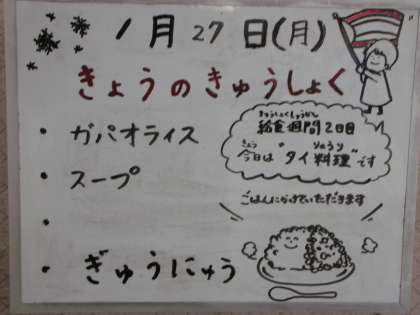 1月27日(月)
きょうのきゅうしょく
・ガパオライス
・スープ
・
・ぎゅうにゅう
きゅうしょくしゅうかん
給食週間2日目
きょう りょうり
今日は"タイ料理"です
ごはんにかけていただきます